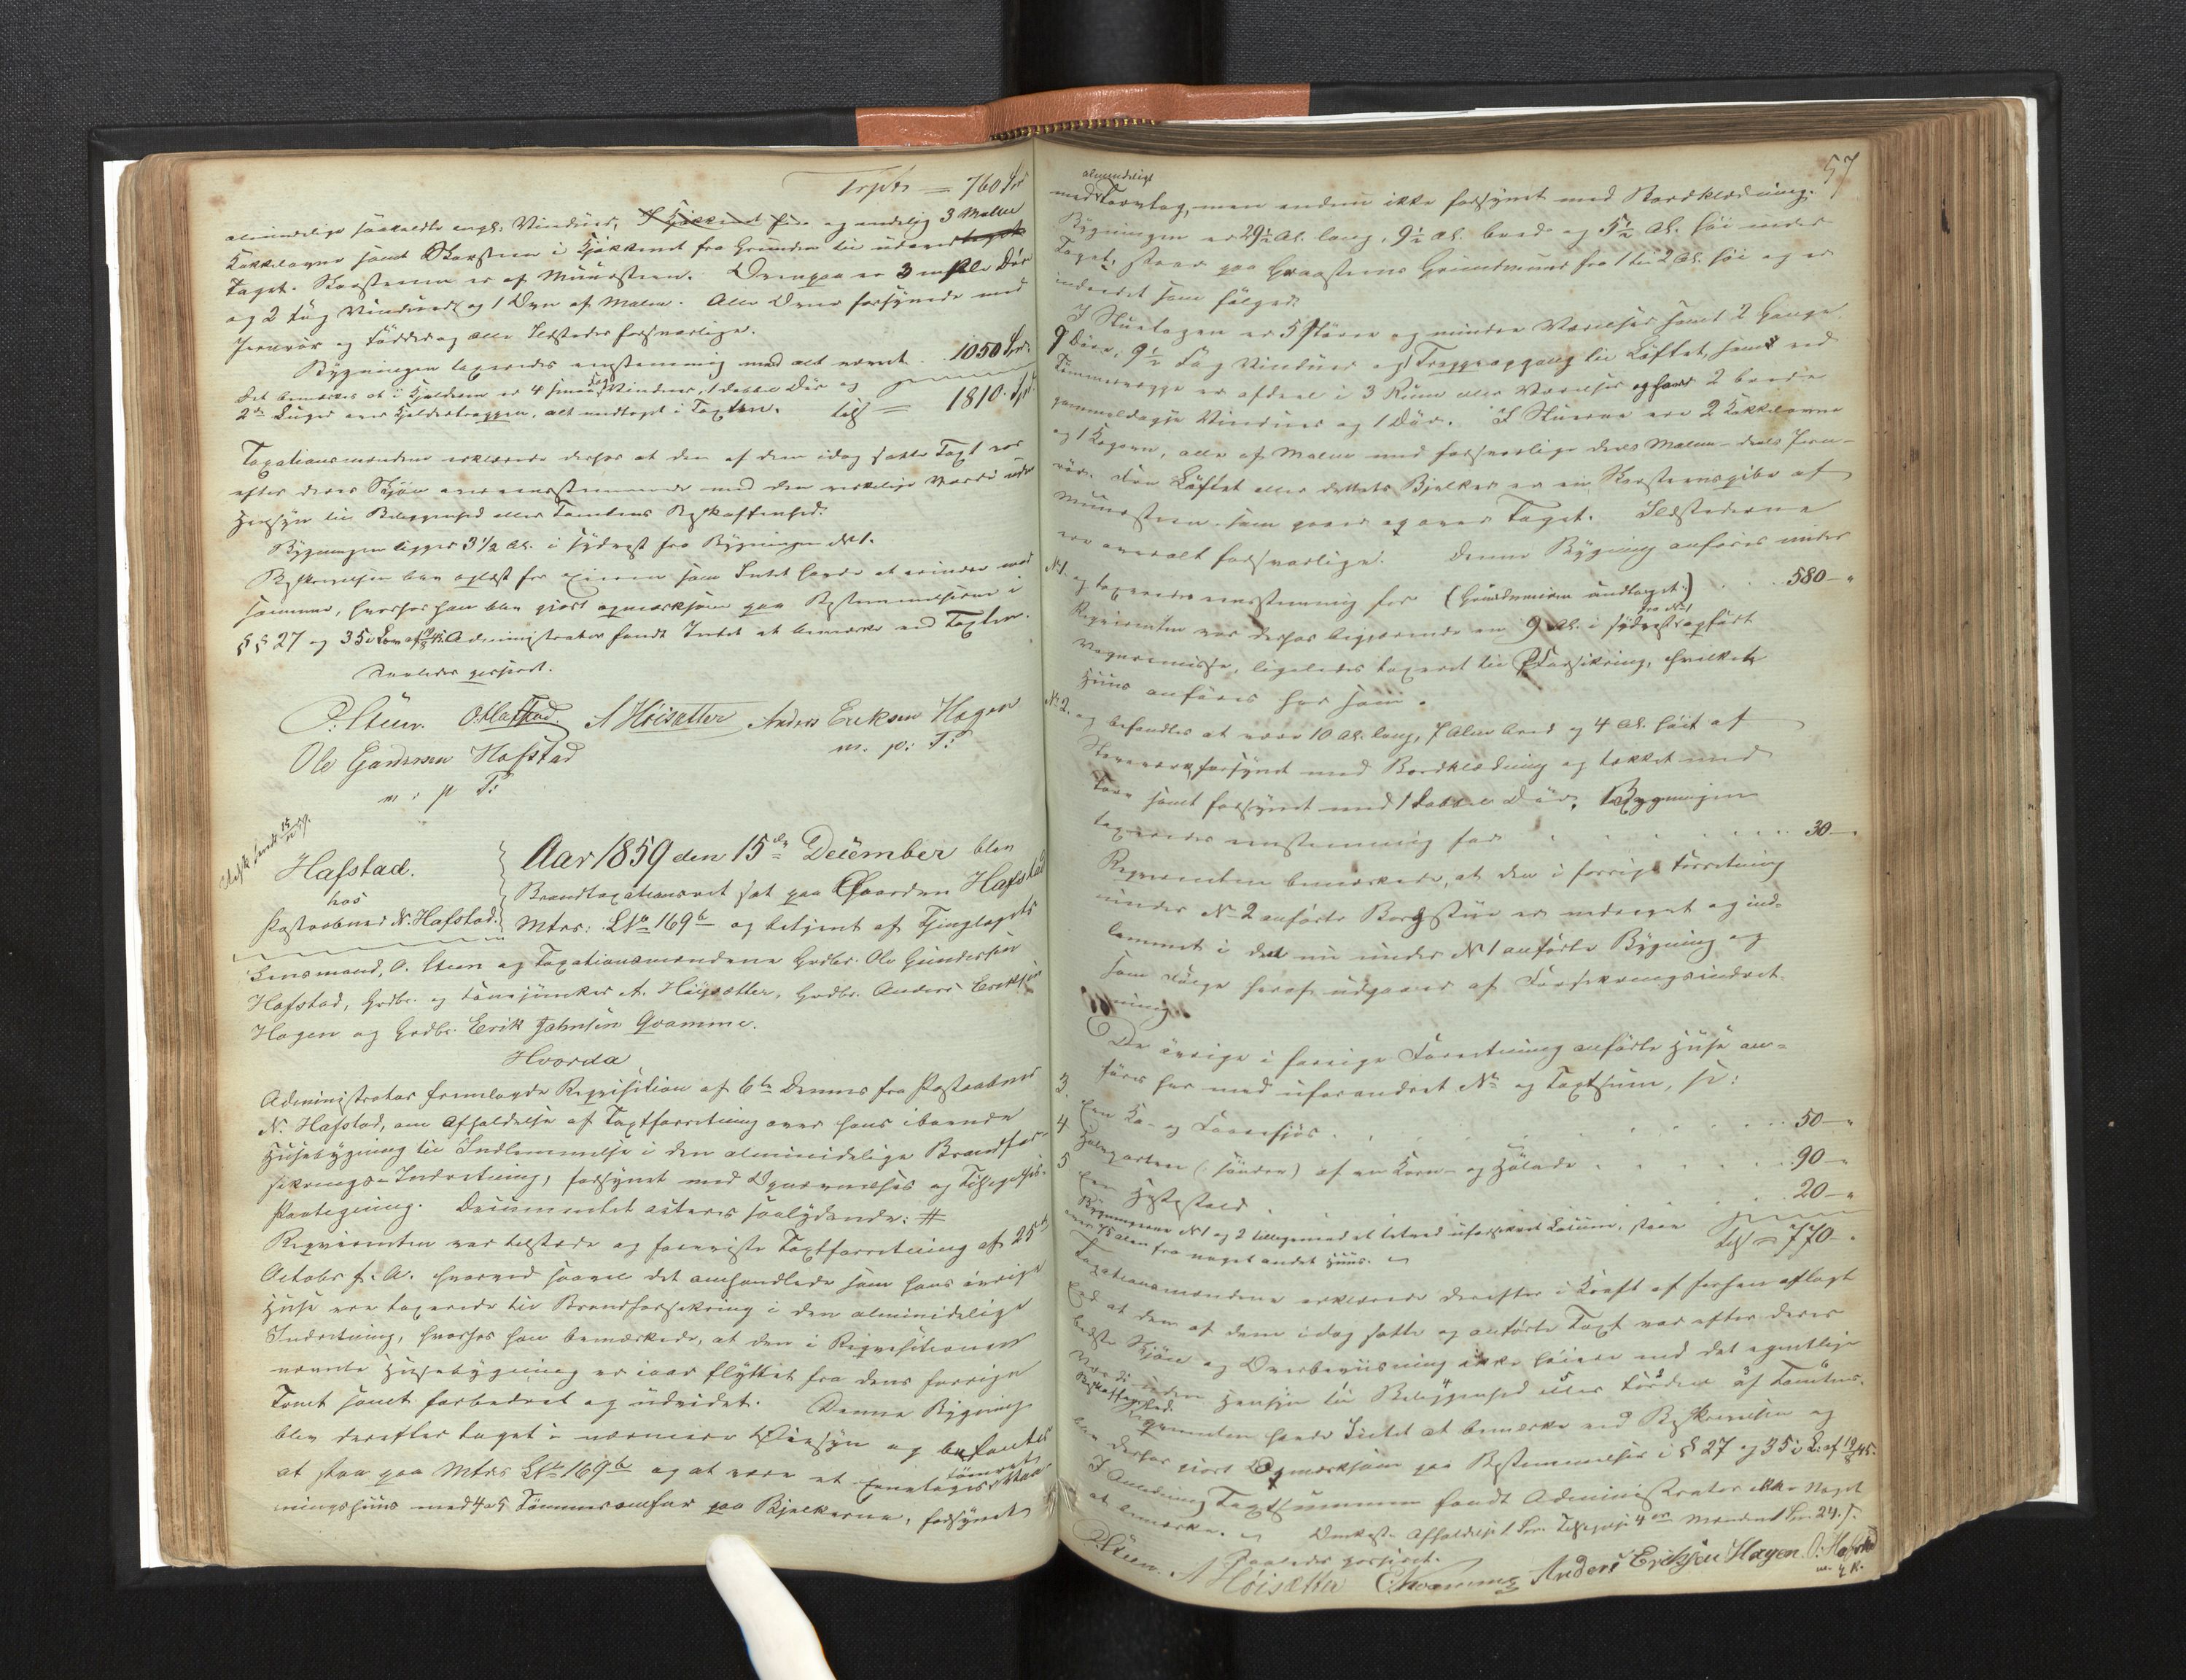 Trpts = 760 Spd
almindelige saakaldte engl: Vinduer, I Kjøkkenet fire og endelig 3 Malm
Kakkelovne samt Skorsteen i Kjøkkenet fra Grunden til udover taget
Taget. Skorstenen er af Muursteen. Ovenpaa er 3 enkle Dør
og 2 Fag Vinduer og 1 Ovn af Malm. Alle Ovne forsynede med
Jernrør og Fødder og alle Ildsteder forsvarlige.
Bygningen taxeredes enstemmig med alt nævnt . . 1050 Spd.
Det bemærkes at i Kjelderen er 4 smaae Fag Vinduer, 1 dobbelt Dør og
2de Luger over Kjeldertrappen, alt undtaget i Taxten. tils = 1810. Spd
Taxationsmændene erklærede derfor at den af dem idag satte Taxt var
efter deres Skjøn overeensstemmende med den virkelige Værdie uden
Hensyn til Beliggenhed eller Tomtens Beskaffenhed.
Bygningen ligger 3 1/2 Al. i sydvest fra Bygningen No 1.
Beskrivelsen blev oplæst for Eieren som Intet havde at erindre mod
samme, hvorfor han blev gjort opmærksom paa Bestemmelserne i
§§ 27 og 35 i Lov af Administrator fandt Intet at bemærke ved Taxten.
Saaledes passeret.
O. Steen. O. Hafstad. A Høisætter Anders Eriksen Hagen
m. p: P:
Ole Gundersen Hafstad
m: p P:
Afsk. sendt 15/12 59.
Hafstad.
hos
Postaabner N. Hafstad.
Aar 1859 den 15de December blev
Brandtaxationsret sat paa Gaarden Hafstad
Mtrs: LNo 169b og betjent af Thinglagets
Lensmand, O. Steen og Taxationsmændene Grdbr. Ole Gundersen
Hafstad, Grdbr. og A. Høisætter, Grdbr. Anders Eriksen
Hagen og Grdbr. Erik Johnsen Qvamme.
Hvorda
Administrator fremlagde Reqvisition af 6te Dennes fra Postaabner
N. Hafstad, om Afholdelse af Taxtforretning over hans iboende
Huusebygning til Indlemmelse i den almindelige Brandfor-
sikrings-Indretning, forsynet med Opnævnelses og Tilsigelses-
Paategning. Documentet acteres saalydende: #
Reqvirenten var tilstede og foreviste Taxtforretning af 25de
Octobr f. A. hvorved saavel det omhandlede som hans øvrige
Huse ere taxerede til Brandforsikring i den almindelige
Indretning, hvorhos han bemærkede, at den i Reqvisitionen
nævnte Huusebygning er i aar flyttet fra dens forrige
Tomt samt forbedret og udvidet. Denne Bygning
blev derefter taget i nærmere Øiesyn og befandtes
at staa paa Mtrs LNo 169b og at være et Eenetages tømret Vaa-
ningshuus med 4 a 5 Tømmeromfar paa Bjelkerne, forsynet
57
med almindeligt Torvtag, men endnu ikke forsynet med Bordklædning.
Bygningen er 29 1/2 Al. lang, 9 1/2 Al. bred og 5 1/2 Al. høi under
Taget, staar paa Graasteens Grundmuur fra 1 til 2 Al. høi og er
indredet som følger:
I Stuetagen er 5 større og mindre Værelser samt 2 Gange
9 Døre, 9 1/2 Fag Vinduer og 1 Trappeopgang til Loftet, som ved
Tømmervægge er afdeel i 3 Rum eller Værelser og har 2 brede
gammeldags Vinduer og 1 Dør. I Stuerne ere 2 Kakkelovne
og 1 Kogeovn, alle af Malm med forsvarlige deels Malm- deels Jern-
rør. Fra Loftet eller dettets Bjelker er en Skorsteenspibe af
Muursteen som gaaer op over Taget. Ildstederne
ere overalt forsvarlige. Denne Bygning anføres under
No 1. og taxeredes enstemmig for (Grundmuren undtaget.) . . . 580 - "
Reqvirenten var derhos begjærende en 9 Al. i sydvest fra No 1 opført
Vognremisse, ligeledes taxeret til Forsikring, hvilket
Huus anføres her som.
No 2. og befandtes at være 10 Al. lang, 7 Alen bred og 4 Al. høit af
Stavværk forsynet med Bordklædning og tækket med
Torv samt forsynet med 1 dobbel Dør. Bygningen
taxeredes enstemmig for . . . . . . . . 30 - "
Reqvirenten bemærkede, at den i forrige Forretning
under No 2 anførte Borgstue er nedtaget og ind-
lemmet i den nu under No 1 anførte Bygning og
som Følge heraf udgaaer af Forsikringsindret-
ning.
De øvrige i forrige Forretning anførte Huse an-
føres her med uforandret No og Taxtsum, se:
3. Een Ko- og Faarefjøs . . . . . . . . 50 - "
4. Halvparten (søndre) af en Korn- og Hølade . . . . . 90 - "
5 Een Hestestald . . . . . . . . 20 - "
Bygningerne No 1 og 2 tilligemed et uforsikret Locum, staar
over 75 Alen fra noget andet Huus. Tils = 770 - "
Taxationsmændene erklærede derefter i Kraft af forhen aflagt
Eed at den af dem idag satte og anførte Taxt var efter deres
bedste Skjøn og Overbeviisning ikke høiere end det egentlige
Værdi uden Hensyn til Beliggenhed eller Jorden af Tomtens
Beskaffenhed.
Reqvirenten havde Intet at bemærke ved Beskrivelsen og
blev derhos gjort Opmærksom paa Bestemmelser i § 27 og 35 i L: af 19/8 45.
I Anledning Taxtsummen fandt Administrator ikke Noget
at bemærke. Omkost. Afholdelse 1 Spd. Tilsigelse 4 Mændene 1 Spd. 24. s.
Saaledes passeret.
O. Steen. A Høisætter E. Qvamme Anders Eriksen Hagen O. Hafstad